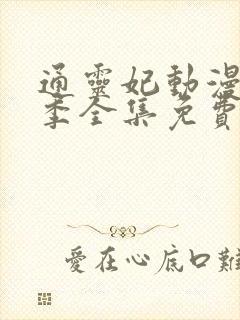 通靈妃動漫
季全集免費
愛在心底口難